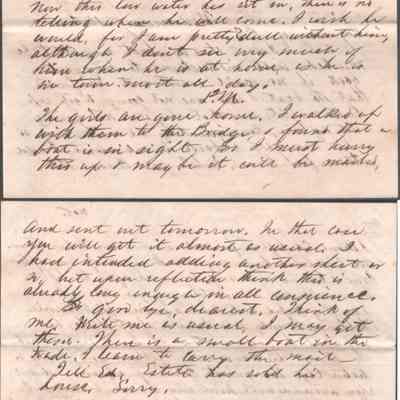 Now this low water has set in, there is no
telling when he will come. I wish he
would, for I am pretty dull without him,
although I don't see very much of
him when he is at home, as he is
in town most all day.
The girls are gone home. I walked up
with them to the Bridge, & found that a
boat is in sight. So I must hurry
this up & may be it will be mailed,
And sent out tomorrow. In that case
you will get it almost as usual. I
had intended adding another sheet or
so, but upon reflection think this is
already long enough in all conscience.
So good bye, dearest. Think of
me. Write me as usual, I may get
them. There is a small boat in the
trade, I learn to carry the mail
Tell Ed. Estell has sold his
house. Sorry.